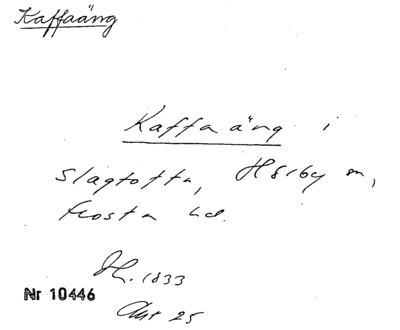 Kaffaäng
Kaffaäng i
Slagtofta, Hörby sn,
Frosta hd.
1833
Nr 10446
Akt 25